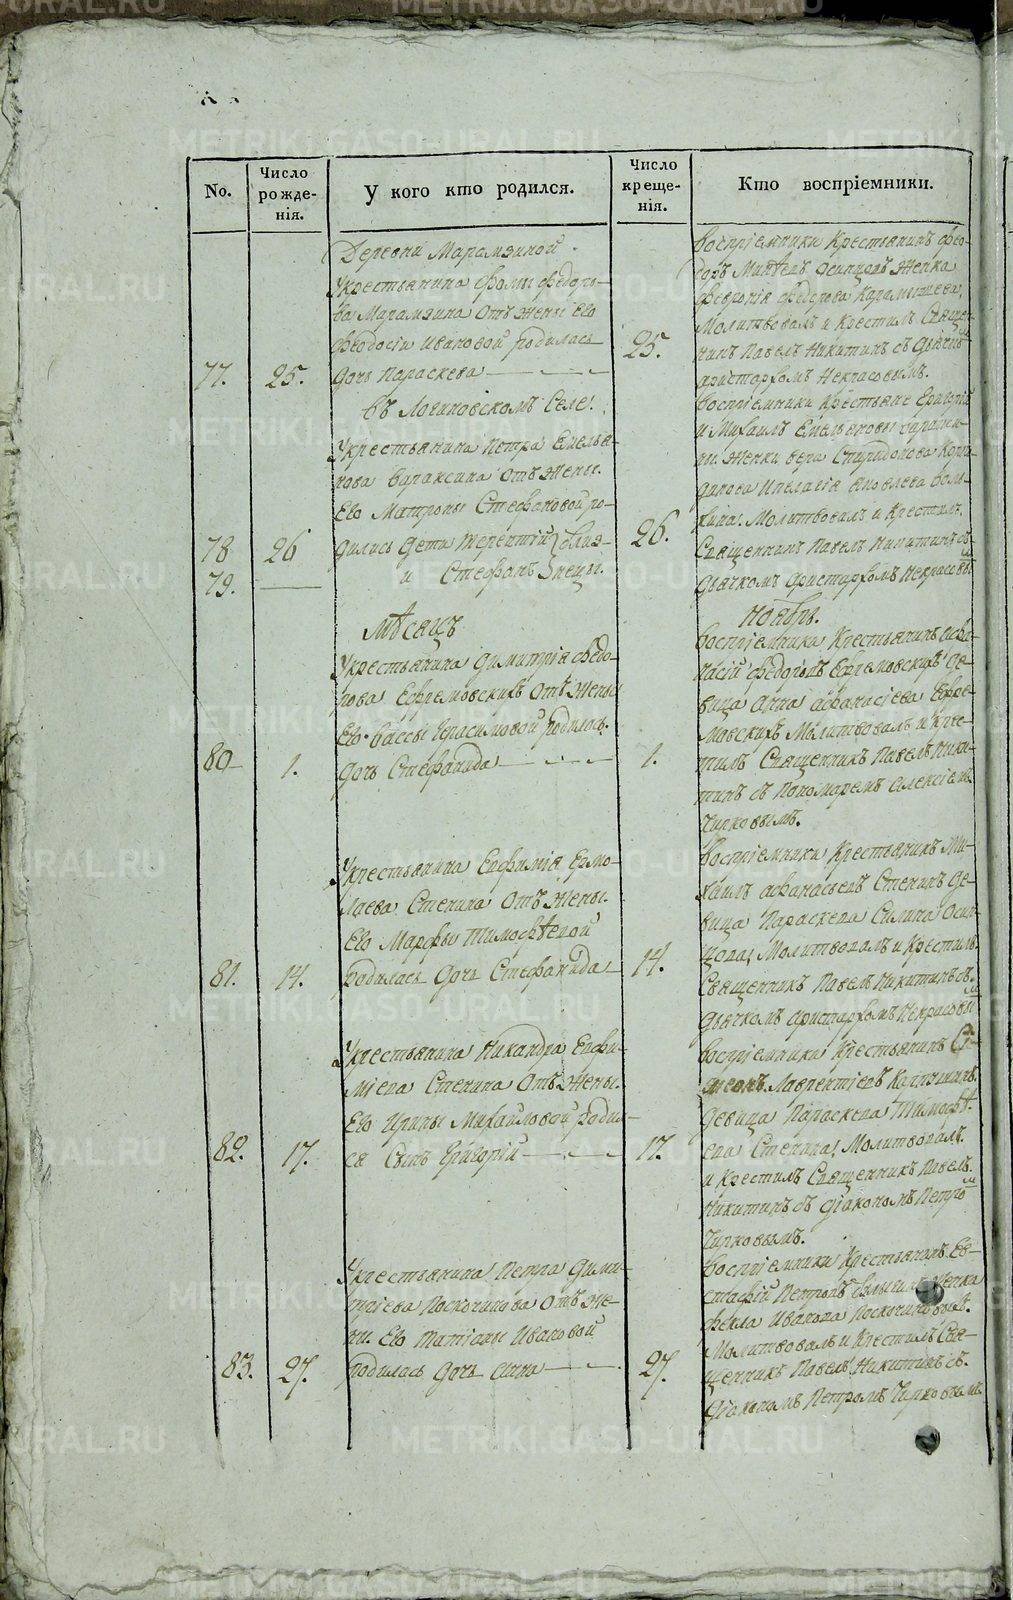 No.
Число рожде-нія.
У кого кто родился.
Число креще-нія.
Кто воспріемники.
Деревни Марамзиной
У крестьянина Фомы Федоро-
ва Марамзина отъ жены его
Феодосіи Ивановой родилась
77. 25. дочь Параскева 25.
воспріемники Крестьянинъ Фео-
доръ Осиповъ Женка
Февронія Федорова
Молитвовалъ и Крестилъ Священ-
никъ Павелъ Никитинъ съ дьячкомъ
аристархомъ Некрасовымъ.
въ Логиновскомъ Селе.
У крестьянина Петра Емелья-
нова Бараксина отъ жены
Его Матроны Стефановой ро-
78 26 дились дети Терентій близ- 26.
79. и Стефанъ нецы.
воспріемники Крестьяне Григорій
и Михаилъ Емельяновы
Женки вера Спиридонова
Пелагія Яковлева
Молитвовалъ и Крестилъ
Священникъ Павелъ Никитинъ съ
Дьячкомъ аристархомъ Некрасовымъ
Мѣсяцъ
Ноябрь.
У крестьянина Димитрія Федо-
рова Ефремовскихъ отъ жены
Его Вассы Герасимовой родилась
80 1. дочь Стефанида 1.
воспріемники Крестьянинъ Афа-
насій Федоровъ Ефремовскихъ де-
вица Анна афанасіева Ефре-
мовскихъ Молитвовалъ и кре-
стилъ Священникъ Павелъ Ники-
тинъ съ Пономаремъ алексіемъ
Чирковымъ.
У крестьянина Евфимія Ермо-
лаева Стенина отъ жены
Его Марфы Тимофѣевой
81. 14. родилась дочь Стефанида 14.
воспріемники Крестьянинъ Ми-
хаилъ афанасьевъ Стенинъ де-
вица Параскева Силина Осин-
цова Молитвовалъ и Крестилъ
Священникъ Павелъ Никитинъ съ
Дьячкомъ аристархомъ Некрасовымъ
У крестьянина Никандра Евфи-
міева Стенина отъ жены
Его Ирины Михайловой родил-
82. 17. ся Сынъ Григорій 17.
воспріемники Крестьянинъ Си-
меонъ Лаврентіевъ
девица Параскева Тимофѣ-
ева Стенина Молитвовалъ
и Крестилъ Священникъ Павелъ
Никитинъ съ діакономъ Петромъ
Чирковымъ.
У крестьянина Петра Дими-
тріева Поскочинова отъ же-
ны Его Татіаны Ивановой
83. 27. родилась дочь Анна 27.
воспріемники Крестьянинъ Ев-
стафій Петровъ Женка
Фекла Иванова
Молитвовалъ и Крестилъ Свя-
щенникъ Павелъ Никитинъ съ
діакономъ Петромъ Чирковымъ
METRIKI.GASO-URAL.RU